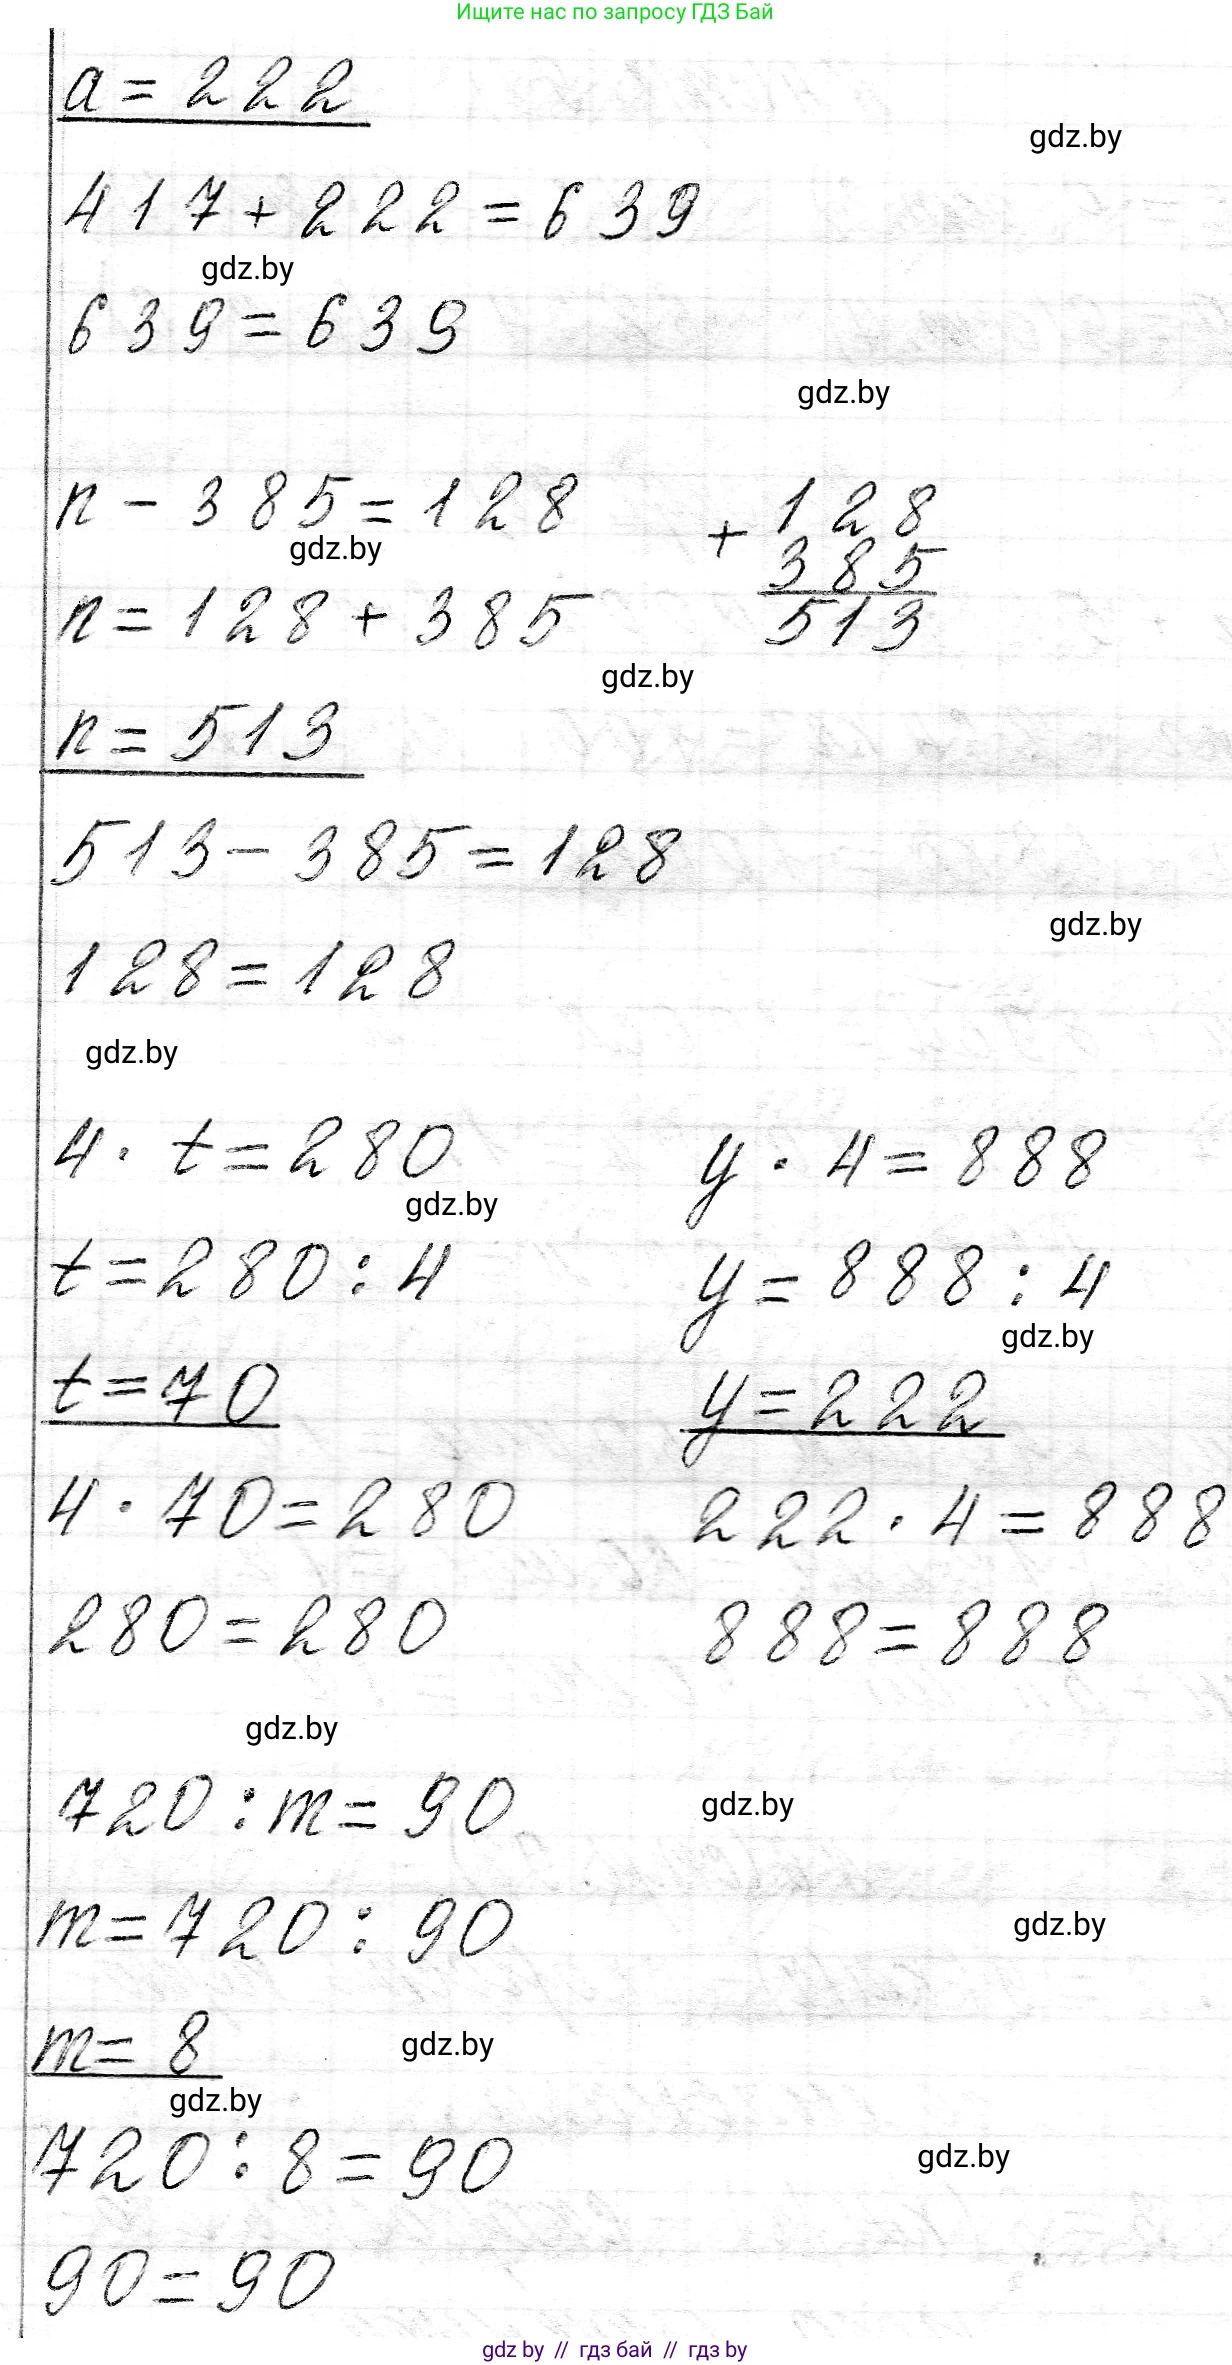 Ищите нас по запросу ГДЗ Бай
a = 222
gdz.by
417 + 222 = 639
gdz.by
639 = 639
gdz.by
n - 385 = 128
+ 128
385
513
gdz.by
n = 128 + 385
gdz.by
n = 513
513 - 385 = 128
gdz.by
128 = 128
gdz.by
4 · t = 280
gdz.by
t = 280 : 4
t = 70
4 · 70 = 280
280 = 280
y · 4 = 888
y = 888 : 4
gdz.by
y = 222
222 · 4 = 888
888 = 888
gdz.by
720 : m = 90
gdz.by
m = 720 : 90
gdz.by
m = 8
gdz.by
gdz.by
720 : 8 = 90
gdz.by
90 = 90
gdz.by // гдз бай // гдз by